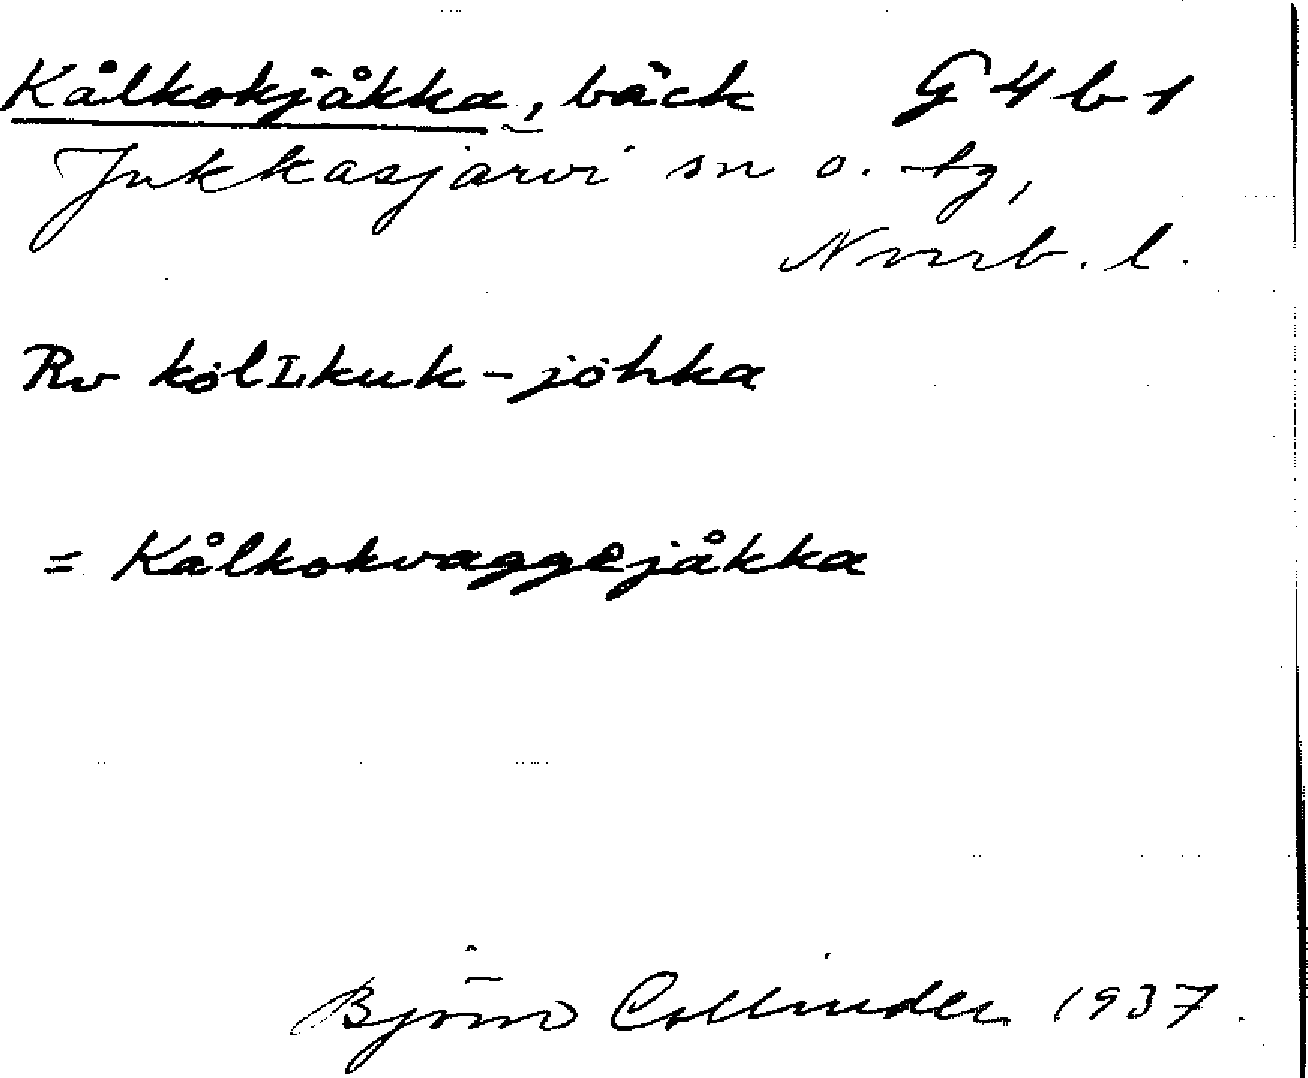 Kålkokjåkka, bäck G 4 b 1
Jukkasjärvi sn o. tg,
Norrb. l.
Rv kȯlʟkuk-jȯhka
= Kålkokvaggejåkka
Björn Collinder 1937.